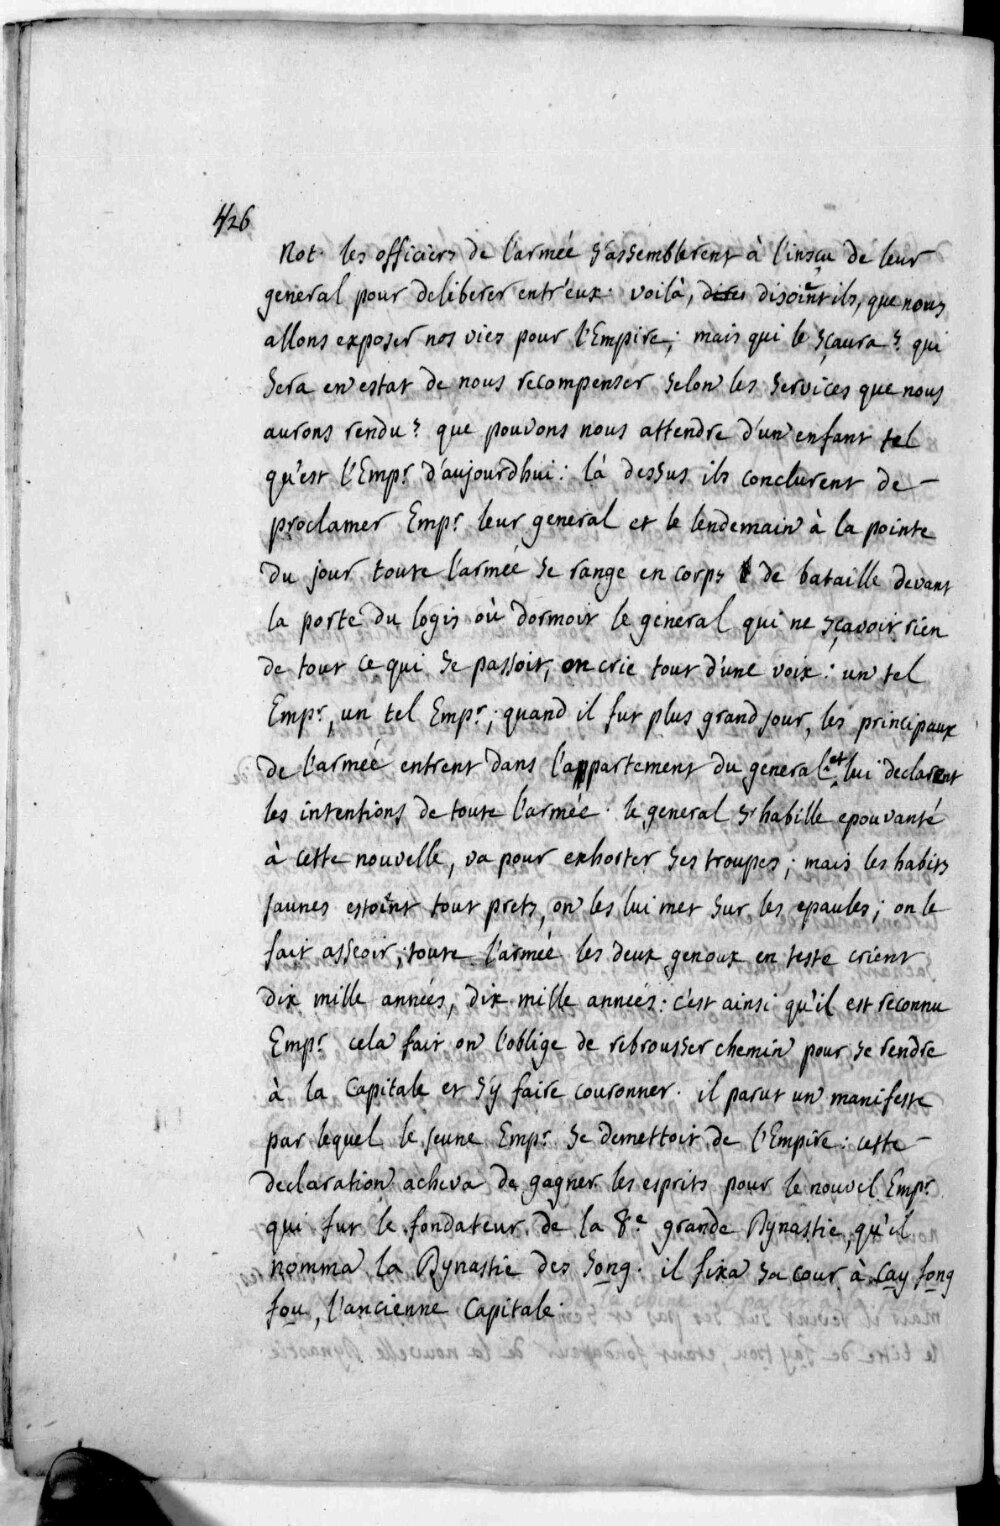 426
Not. les officiers de l'armée s'assemblerent à l'insçu de leur
general pour deliberer entr'eux. voilà, disoint ils, que nous
allons exposer nos vies pour l'Empire; mais qui le sçaura? qui
sera en estat de nous recompenser selon les services que nous
aurons rendu? que pouvons nous attendre d'un enfant tel
qu'est l'Empr. d'aujourdhui: là dessus ils conclurent de –
proclamer Empr. leur general et le lendemain à la pointe
du jour toute l'armée se range en corps de bataille devant
la porte du logis où dormoit le general qui ne sçavoit rien
de tout ce qui se passoit, on crie tout d'une voix: un tel
Empr, un tel Empr.; quand il fut plus grand jour, les principaux
de l'armée entrent dans l'appartement du general et lui declarent
les intentions de toute l'armée. le general s'habille epouvanté
à cette nouvelle, va pour exhorter ses troupes; mais les habits
jaunes estoint tout prets, on les lui met sur les epaules; on le
fait asseoir; toute l'armée les deux genoux en teste crient
dix mille années, dix mille années: c'est ainsi qu'il est reconnu
Empr. cela fait on l'oblige de rebrousser chemin pour se rendre
à la Capitale et s'y faire couronner. il parut un manifeste
par lequel le jeune Empr. se demettoit de l'Empire: cette –
declaration acheva de gagner les esprits pour le nouvel Empr.
qui fut le fondateur de la 8.e grande Dynastie, qu'il
nomma la Dynastie des Song. il fixa sa cour à Cay fong
fou, l'ancienne Capitale.